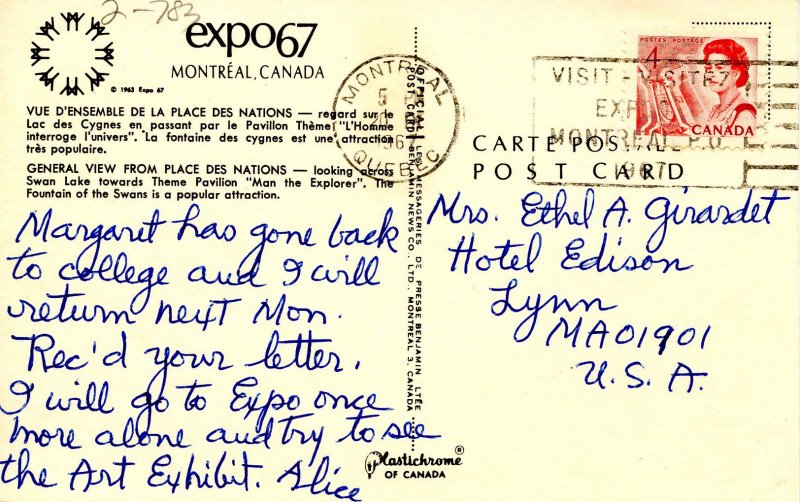 2-783
expo67
MONTRÉAL, CANADA
© 1963 Expo 67
VUE D'ENSEMBLE DE LA PLACE DES NATIONS — regard sur le
Lac des Cygnes en passant par le Pavillon Thème "L'Homme
interroge l'univers". La fontaine des cygnes est une attraction
très populaire.
GENERAL VIEW FROM PLACE DES NATIONS — looking across
Swan Lake towards Theme Pavilion "Man the Explorer". The
Fountain of the Swans is a popular attraction.
Margaret has gone back
to college and I will
return next Mon.
Rec'd your letter.
I will go to Expo once
more alone and try to see
the Art Exhibit. Alice
OFFICIAL POST CARD
LES MESSAGERIES DE PRESSE BENJAMIN LTÉE
BENJAMIN NEWS CO., LTD., MONTREAL 3, CANADA
Plastichrome®
OF CANADA
MONTREAL
5
1967
QUEBEC
VISIT - VISITEZ
EXPO
MONTREAL P.Q.
1967
POSTES POSTAGE
4
CANADA
CARTE POSTALE
POST CARD
Mrs. Ethel A. Girardet
Hotel Edison
Lynn
MA 01901
U.S.A.